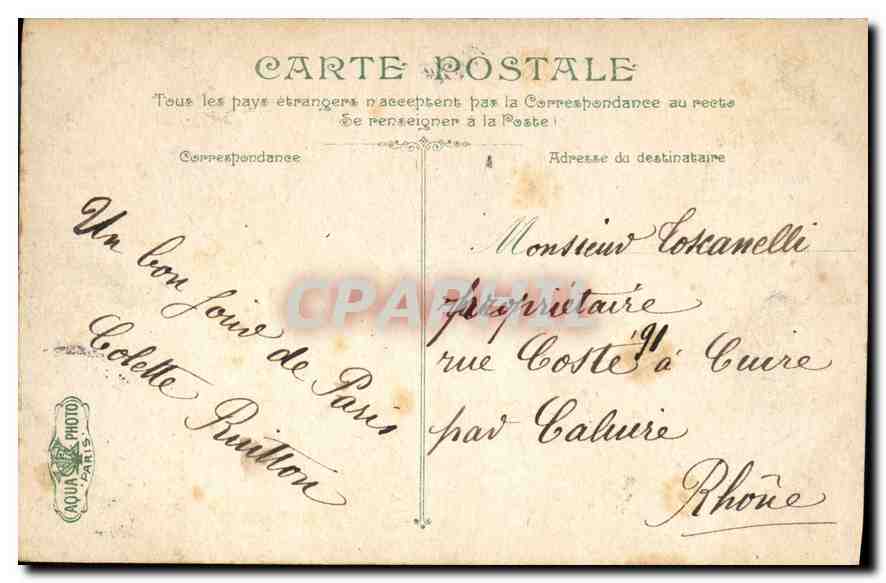 CARTE POSTALE
Tous les pays étrangers n'acceptent pas la Correspondance au recto
Se renseigner à la Poste!
Correspondance
Adresse du destinataire
Un bon jour de Paris
Colette Ruitton
Monsieur Toscanelli
propriétaire
rue Coste 91 à Cuire
par Caluire
Rhône
CPAPHIL
AQUA PHOTO
PARIS